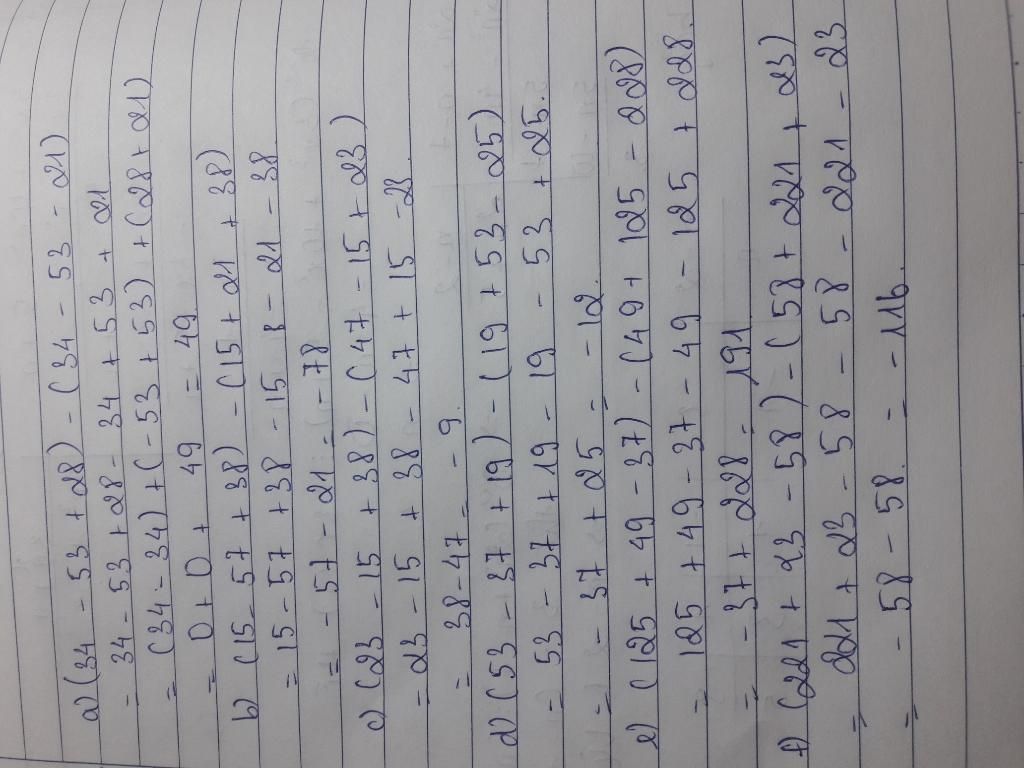 a) (34 - 53 + 28) - (34 - 53 - 21)
= 34 - 53 + 28 - 34 + 53 + 21
= (34 - 34) + (-53 + 53) + (28 + 21)
= 0 + 0 + 49 = 49
b) (15 - 57 + 38) - (15 + 21 + 38)
= 15 - 57 + 38 - 15 - 21 - 38
= - 57 - 21 = - 78
c) (23 - 15 + 38) - (47 - 15 + 23)
= 23 - 15 + 38 - 47 + 15 - 23
= 38 - 47 = - 9.
d) (53 - 37 + 19) - (19 + 53 - 25)
= 53 - 37 + 19 - 19 - 53 + 25.
= - 37 + 25 = - 12.
e) (125 + 49 - 37) - (49 + 125 - 228)
= 125 + 49 - 37 - 49 - 125 + 228.
= - 37 + 228 = 191
f) (221 + 23 - 58) - (58 + 221 + 23)
= 221 + 23 - 58 - 58 - 221 - 23
= - 58 - 58. = - 116.